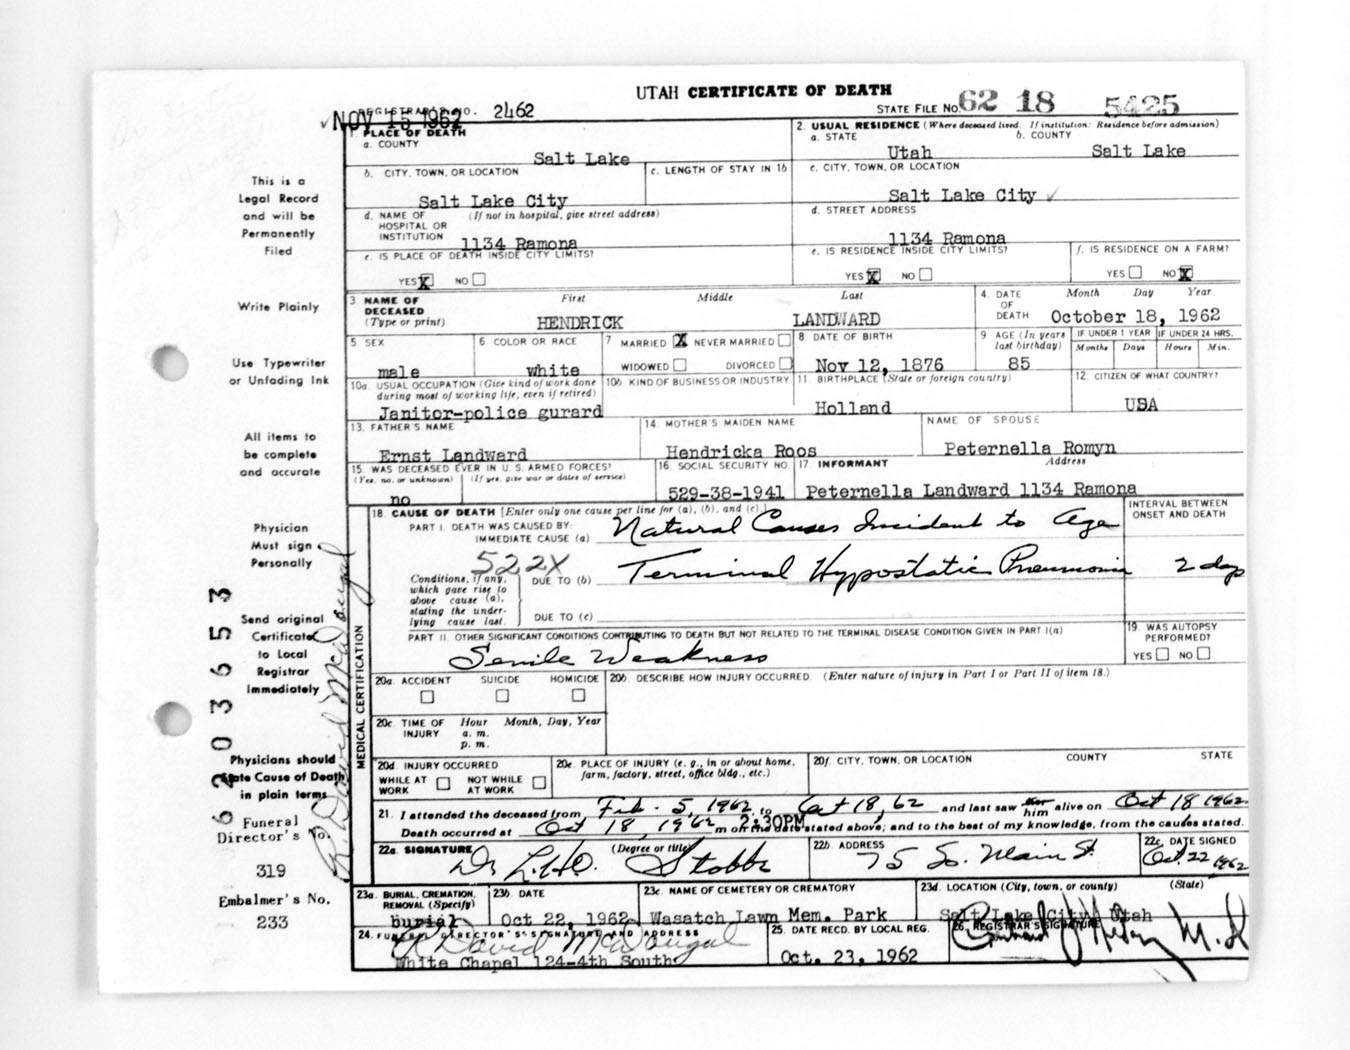 UTAH CERTIFICATE OF DEATH
REGISTRAR'S NO. 2462
NOV 15 1962
STATE FILE No. 62 18 5425
1. PLACE OF DEATH
a. COUNTY
Salt Lake
2. USUAL RESIDENCE (Where deceased lived. If institution: Residence before admission)
a. STATE b. COUNTY
Utah Salt Lake
b. CITY, TOWN, OR LOCATION
Salt Lake City
c. LENGTH OF STAY IN 1b
c. CITY, TOWN, OR LOCATION
Salt Lake City
d. NAME OF (If not in hospital, give street address)
HOSPITAL OR
INSTITUTION 1134 Ramona
d. STREET ADDRESS
1134 Ramona
e. IS PLACE OF DEATH INSIDE CITY LIMITS?
YES X NO
e. IS RESIDENCE INSIDE CITY LIMITS?
YES X NO
f. IS RESIDENCE ON A FARM?
YES NO X
3. NAME OF DECEASED (Type or print)
First Middle Last
HENDRICK LANDWARD
4. DATE OF DEATH
Month Day Year
October 18, 1962
5 SEX
male
6 COLOR OR RACE
white
7 MARRIED X NEVER MARRIED
WIDOWED DIVORCED
8. DATE OF BIRTH
Nov 12, 1876
9 AGE (In years last birthday)
85
IF UNDER 1 YEAR IF UNDER 24 HRS.
Months Days Hours Min.
10a. USUAL OCCUPATION (Give kind of work done
during most of working life, even if retired)
Janitor-police gurard
10b. KIND OF BUSINESS OR INDUSTRY
11. BIRTHPLACE (State or foreign country)
Holland
12. CITIZEN OF WHAT COUNTRY?
USA
13. FATHER'S NAME
Ernst Landward
14. MOTHER'S MAIDEN NAME
Hendricka Roos
NAME OF SPOUSE
Peternella Romyn
15. WAS DECEASED EVER IN U. S. ARMED FORCES?
(Yes, no, or unknown) (If yes, give war or dates of service)
no
16. SOCIAL SECURITY NO.
529-38-1941
17. INFORMANT Address
Peternella Landward 1134 Ramona
18. CAUSE OF DEATH [Enter only one cause per line for (a), (b), and (c).]
INTERVAL BETWEEN
ONSET AND DEATH
PART I. DEATH WAS CAUSED BY:
IMMEDIATE CAUSE (a) Natural Causes Incident to Age
522X
Conditions, if any,
which gave rise to
above cause (a),
stating the under-
lying cause last.
DUE TO (b) Terminal Hypostatic Pneumonia 2 days
DUE TO (c)
PART II. OTHER SIGNIFICANT CONDITIONS CONTRIBUTING TO DEATH BUT NOT RELATED TO THE TERMINAL DISEASE CONDITION GIVEN IN PART I(a)
Senile Weakness
19. WAS AUTOPSY
PERFORMED?
YES NO
MEDICAL CERTIFICATION
20a. ACCIDENT SUICIDE HOMICIDE
20b. DESCRIBE HOW INJURY OCCURRED. (Enter nature of injury in Part I or Part II of item 18.)
20c. TIME OF INJURY
Hour Month, Day, Year
a. m.
p. m.
20d. INJURY OCCURRED
WHILE AT WORK NOT WHILE AT WORK
20e. PLACE OF INJURY (e. g., in or about home,
farm, factory, street, office bldg., etc.)
20f. CITY, TOWN, OR LOCATION COUNTY STATE
21. I attended the deceased from Feb. 5, 1962 to Oct 18, 62 and last saw her him alive on Oct 18 1962
Death occurred at Oct 18, 1962 2:30PM m on the date stated above; and to the best of my knowledge, from the causes stated.
22a. SIGNATURE (Degree or title)
Dr L.H.O. Stobbe
22b. ADDRESS
75 So. Main St.
22c. DATE SIGNED
Oct. 22 1962
23a. BURIAL, CREMATION,
REMOVAL (Specify)
burial
23b. DATE
Oct 22, 1962
23c. NAME OF CEMETERY OR CREMATORY
Wasatch Lawn Mem. Park
23d. LOCATION (City, town, or county) (State)
Salt Lake City Utah
24. FUNERAL DIRECTOR'S SIGNATURE AND ADDRESS
R. David McDougal
White Chapel 124-4th South
25. DATE RECD. BY LOCAL REG.
Oct. 23, 1962
26. REGISTRAR'S SIGNATURE
This is a
Legal Record
and will be
Permanently
Filed
Write Plainly
Use Typewriter
or Unfading Ink
All items to
be complete
and accurate
Physician
Must sign
Personally
Send original
Certificate
to Local
Registrar
Immediately
Physicians should
State Cause of Death
in plain terms
Funeral
Director's No.
319
Embalmer's No.
233
6 2 0 3 6 5 3
R. David McDougal